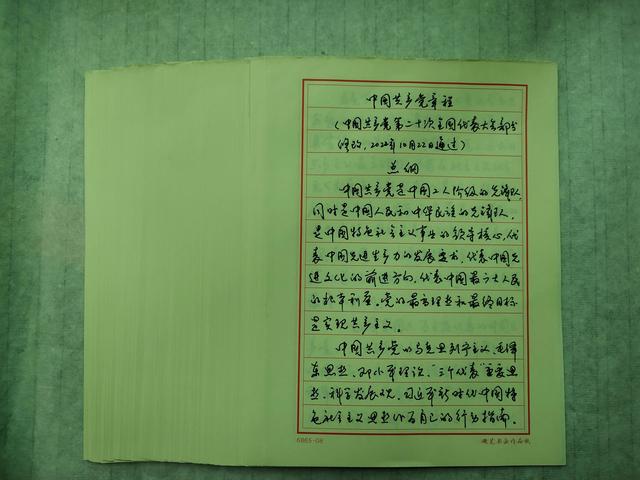 中国共产党章程
(中国共产党第二十次全国代表大会部分
修改,2022年10月22日通过)
总纲
中国共产党是中国工人阶级的先锋队,
同时是中国人民和中华民族的先锋队,
是中国特色社会主义事业的领导核心,代
表中国先进生产力的发展要求,代表中国先
进文化的前进方向,代表中国最广大人民
的根本利益。党的最高理想和最终目标
是实现共产主义。
中国共产党以马克思列宁主义、毛泽
东思想、邓小平理论、“三个代表”重要思
想、科学发展观、习近平新时代中国特
色社会主义思想作为自己的行动指南。
6865-08